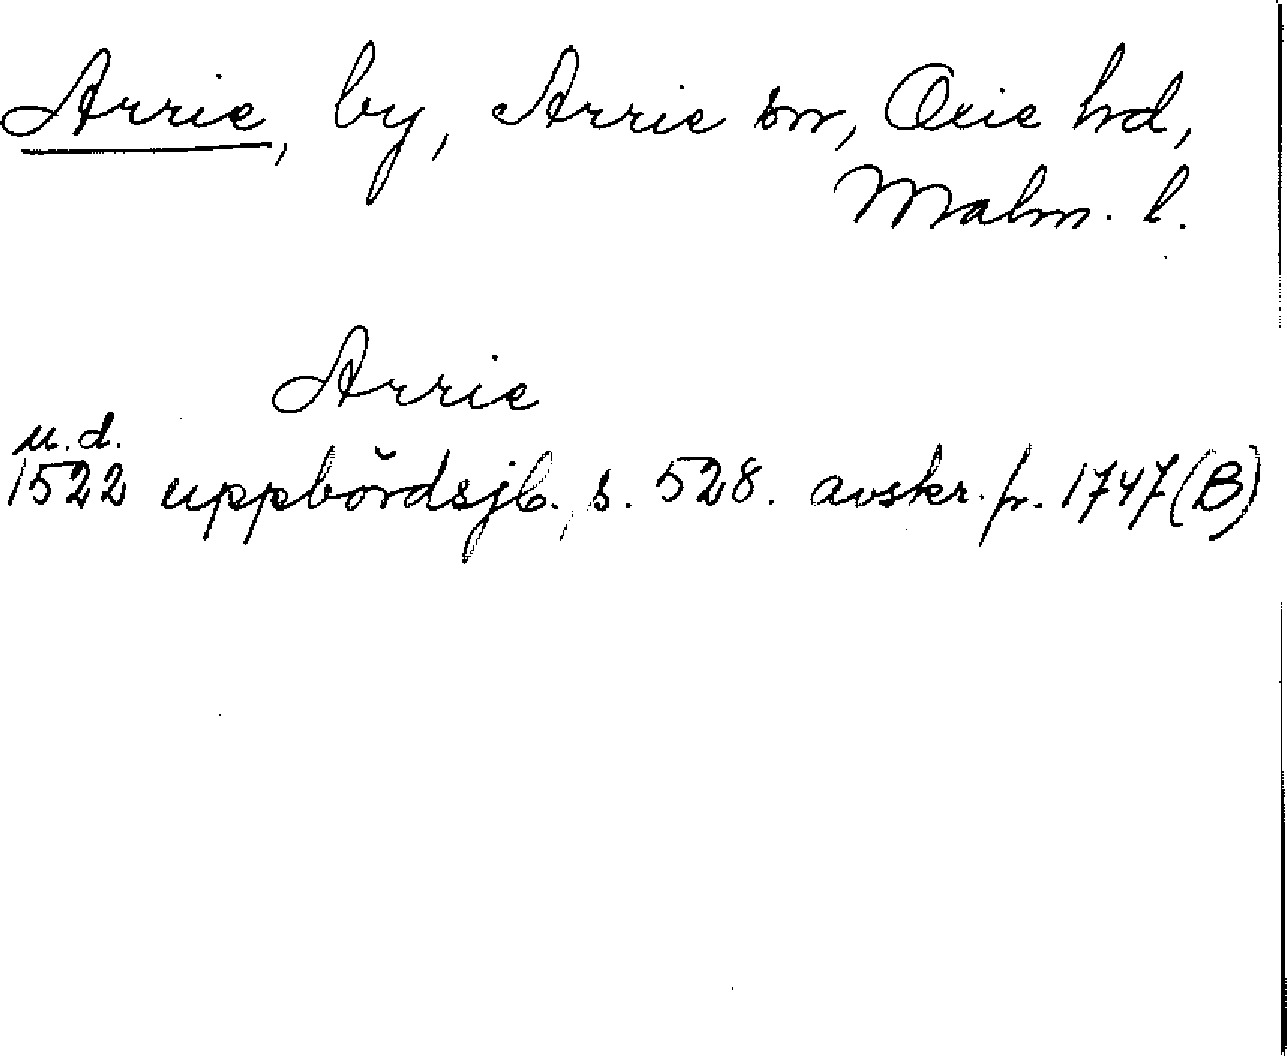 Arrie, by, Arrie sn, Oxie hd,
Malm. l.
Arrie
u.d.
1522 uppbördsjb., s. 528. avskr. fr. 1747 (B)